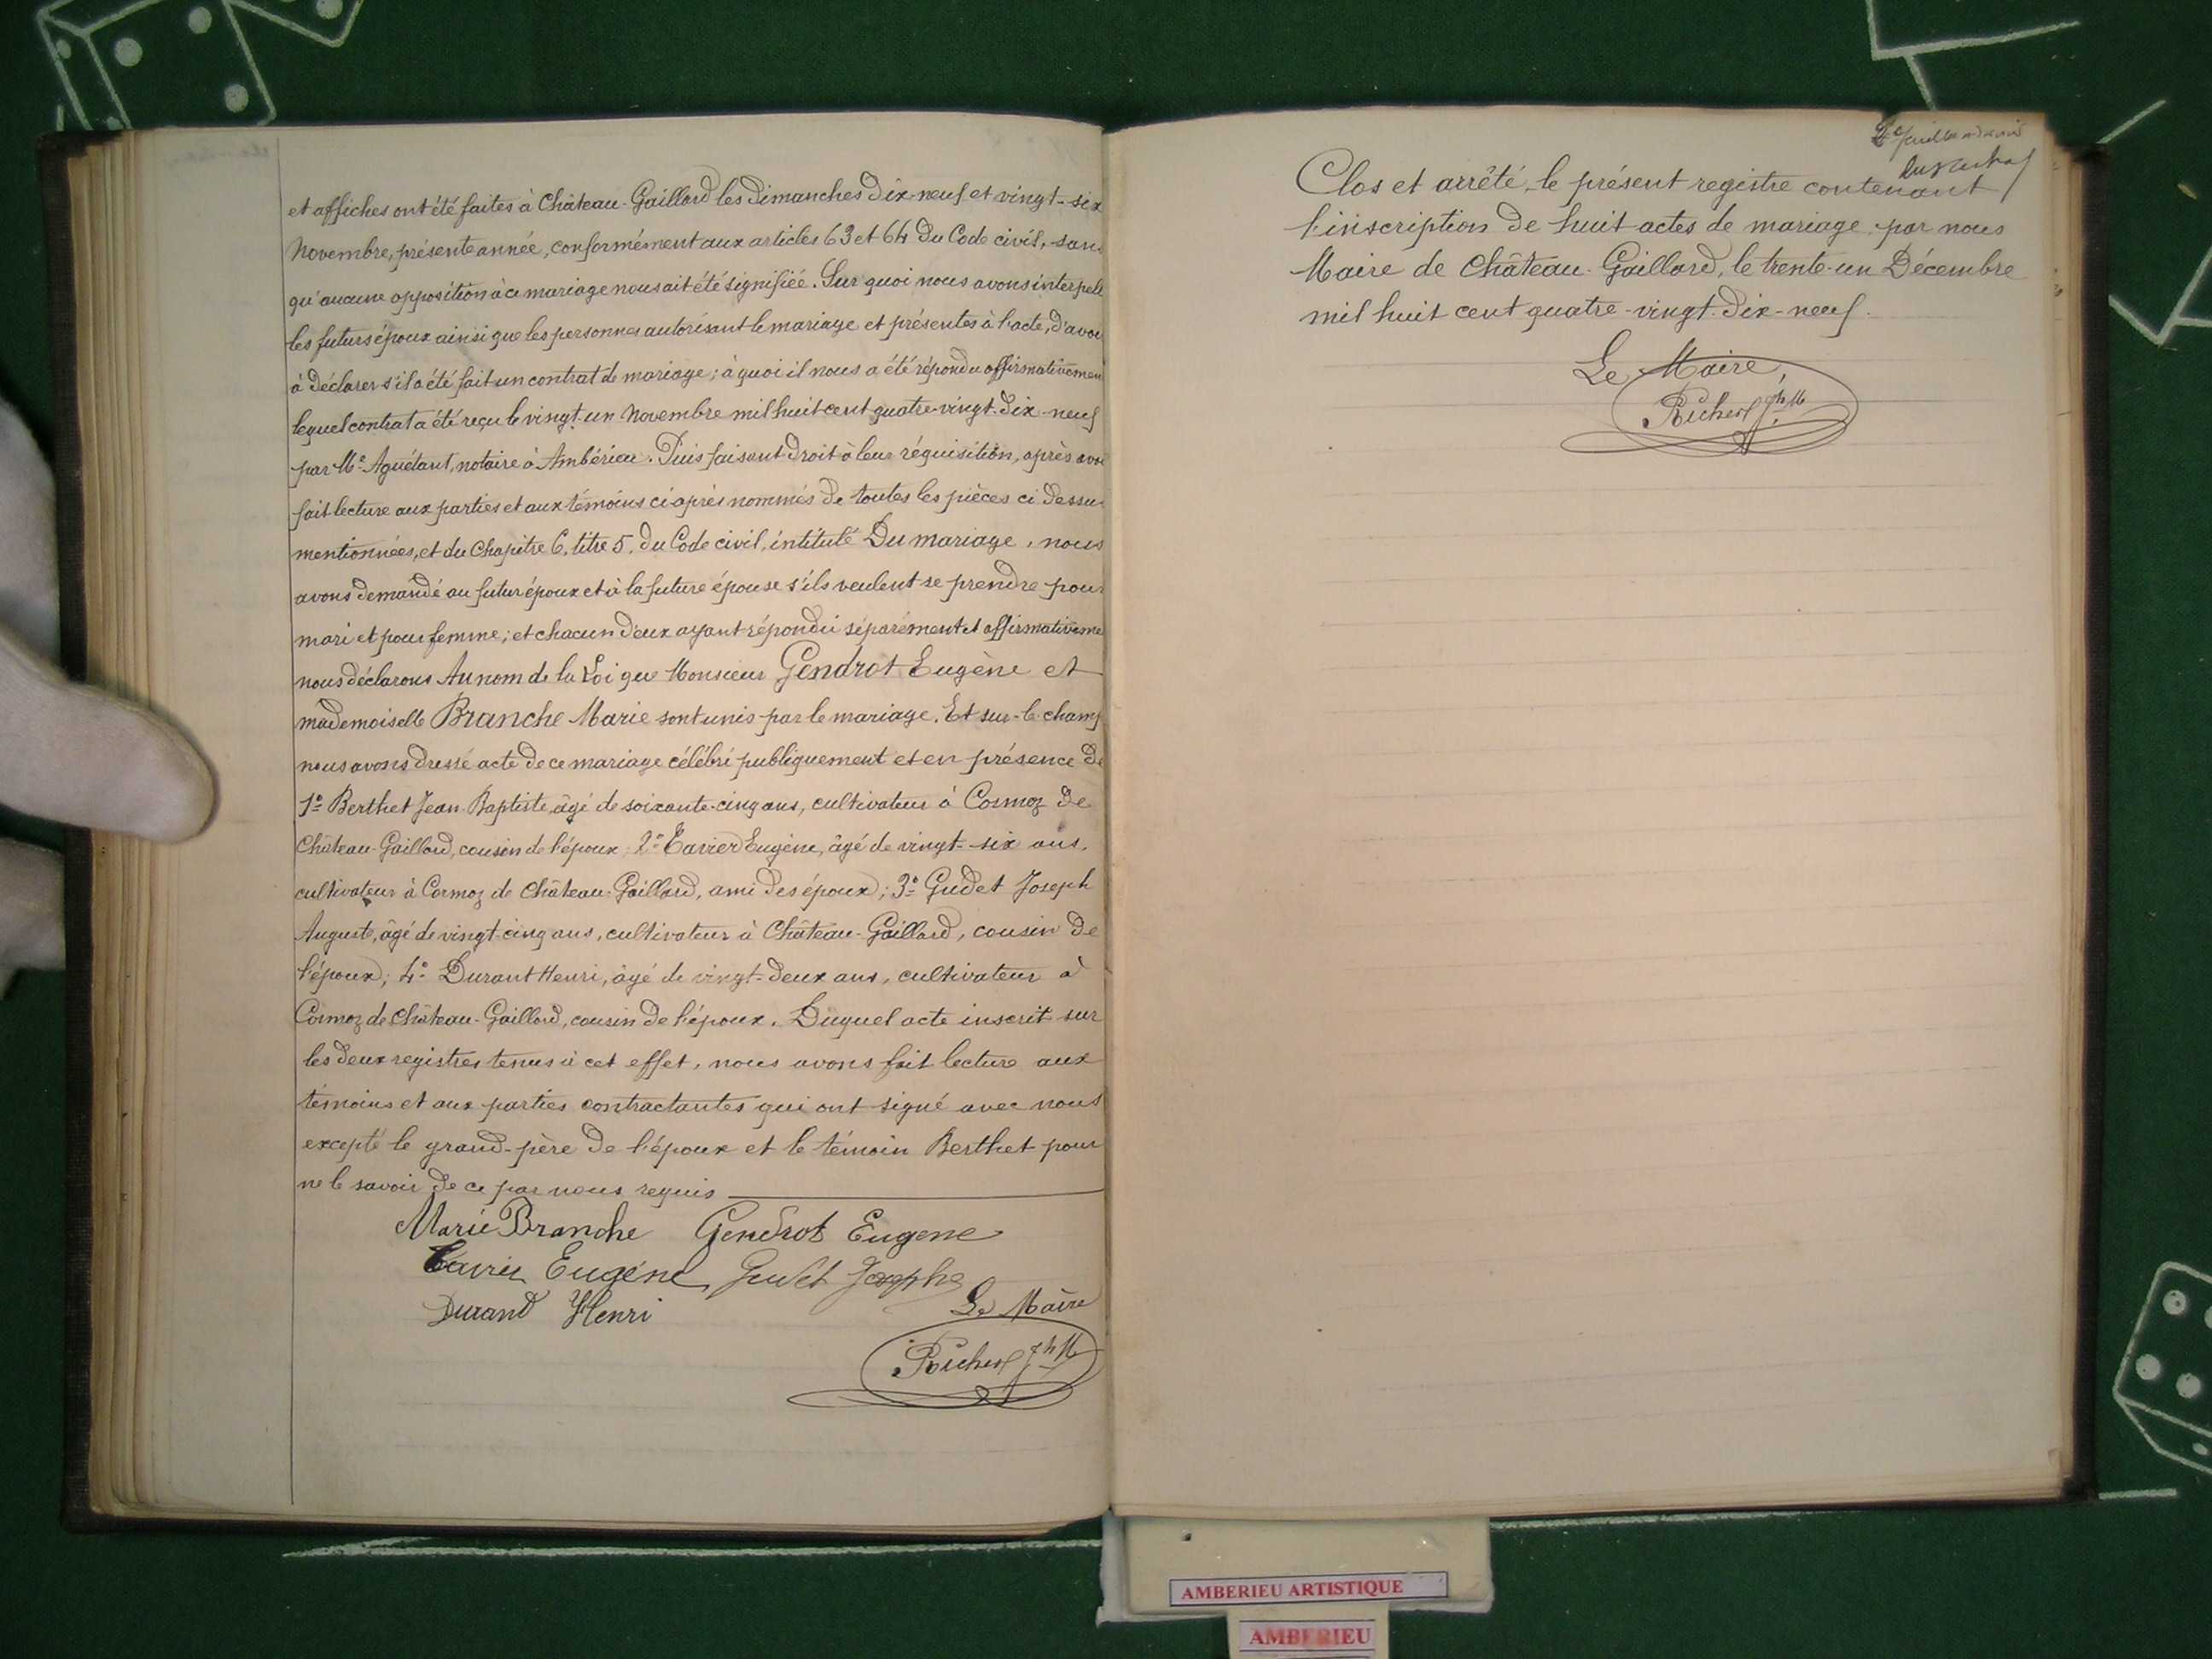 et affiches ont été faites à Château-Gaillard les dimanches dix-neuf et vingt-six
Novembre, présente année, conformément aux articles 63 et 64 du Code civil, sans
qu'aucune opposition à ce mariage nous ait été signifiée. Sur quoi nous avons interpell
les futurs époux ainsi que les personnes autorisant le mariage et présentes à l'acte, d'avoi
à déclarer s'il a été fait un contrat de mariage; à quoi il nous a été répondu affirmativemen
lequel contrat a été reçu le vingt-un Novembre mil huit cent quatre-vingt-dix-neuf
par Me Aguétant, notaire à Ambérieu. Puis faisant droit à leur réquisition, après avoi
fait lecture aux parties et aux témoins ci-après nommés de toutes les pièces ci dessus
mentionnées, et du Chapitre 6, titre 5, du Code civil, intitulé Du mariage, nous
avons demandé au futur époux et à la future épouse s'ils veulent se prendre pour
mari et pour femme; et chacun d'eux ayant répondu séparément et affirmativeme
nous déclarons Au nom de la Loi que Monsieur Gendrot Eugène et
mademoiselle Branche Marie sont unis par le mariage. Et sur-le-champ
nous avons dressé acte de ce mariage célébré publiquement et en présence de
1º Berthet Jean-Baptiste, âgé de soixante-cinq ans, cultivateur à Cormoz de
Château-Gaillard, cousin de l'époux 2º Tavier Eugène, âgé de vingt-six ans,
cultivateur à Cormoz de Château-Gaillard, ami des époux; 3º Gudet Joseph
Auguste, âgé de vingt-cinq ans, cultivateur à Château-Gaillard, cousin de
l'époux; 4º Durant Henri, âgé de vingt-deux ans, cultivateur à
Cormoz de Château-Gaillard, cousin de l'époux. Duquel acte inscrit sur
les deux registres tenus à cet effet, nous avons fait lecture aux
témoins et aux parties contractantes qui ont signé avec nous
excepté le grand-père de l'époux et le témoin Berthet pour
ne le savoir de ce par nous requis
Marie Branche Gendrot Eugene
Tavier Eugéne Gudet Josephe
Durand Henri
Le Maire
Clos et arrêté, le présent registre contenant
l'inscription de huit actes de mariage, par nous
Maire de Château-Gaillard, le trente-un Décembre
mil huit cent quatre-vingt-dix-neuf.
Le Maire,
AMBERIEU ARTISTIQUE
AMBERIEU